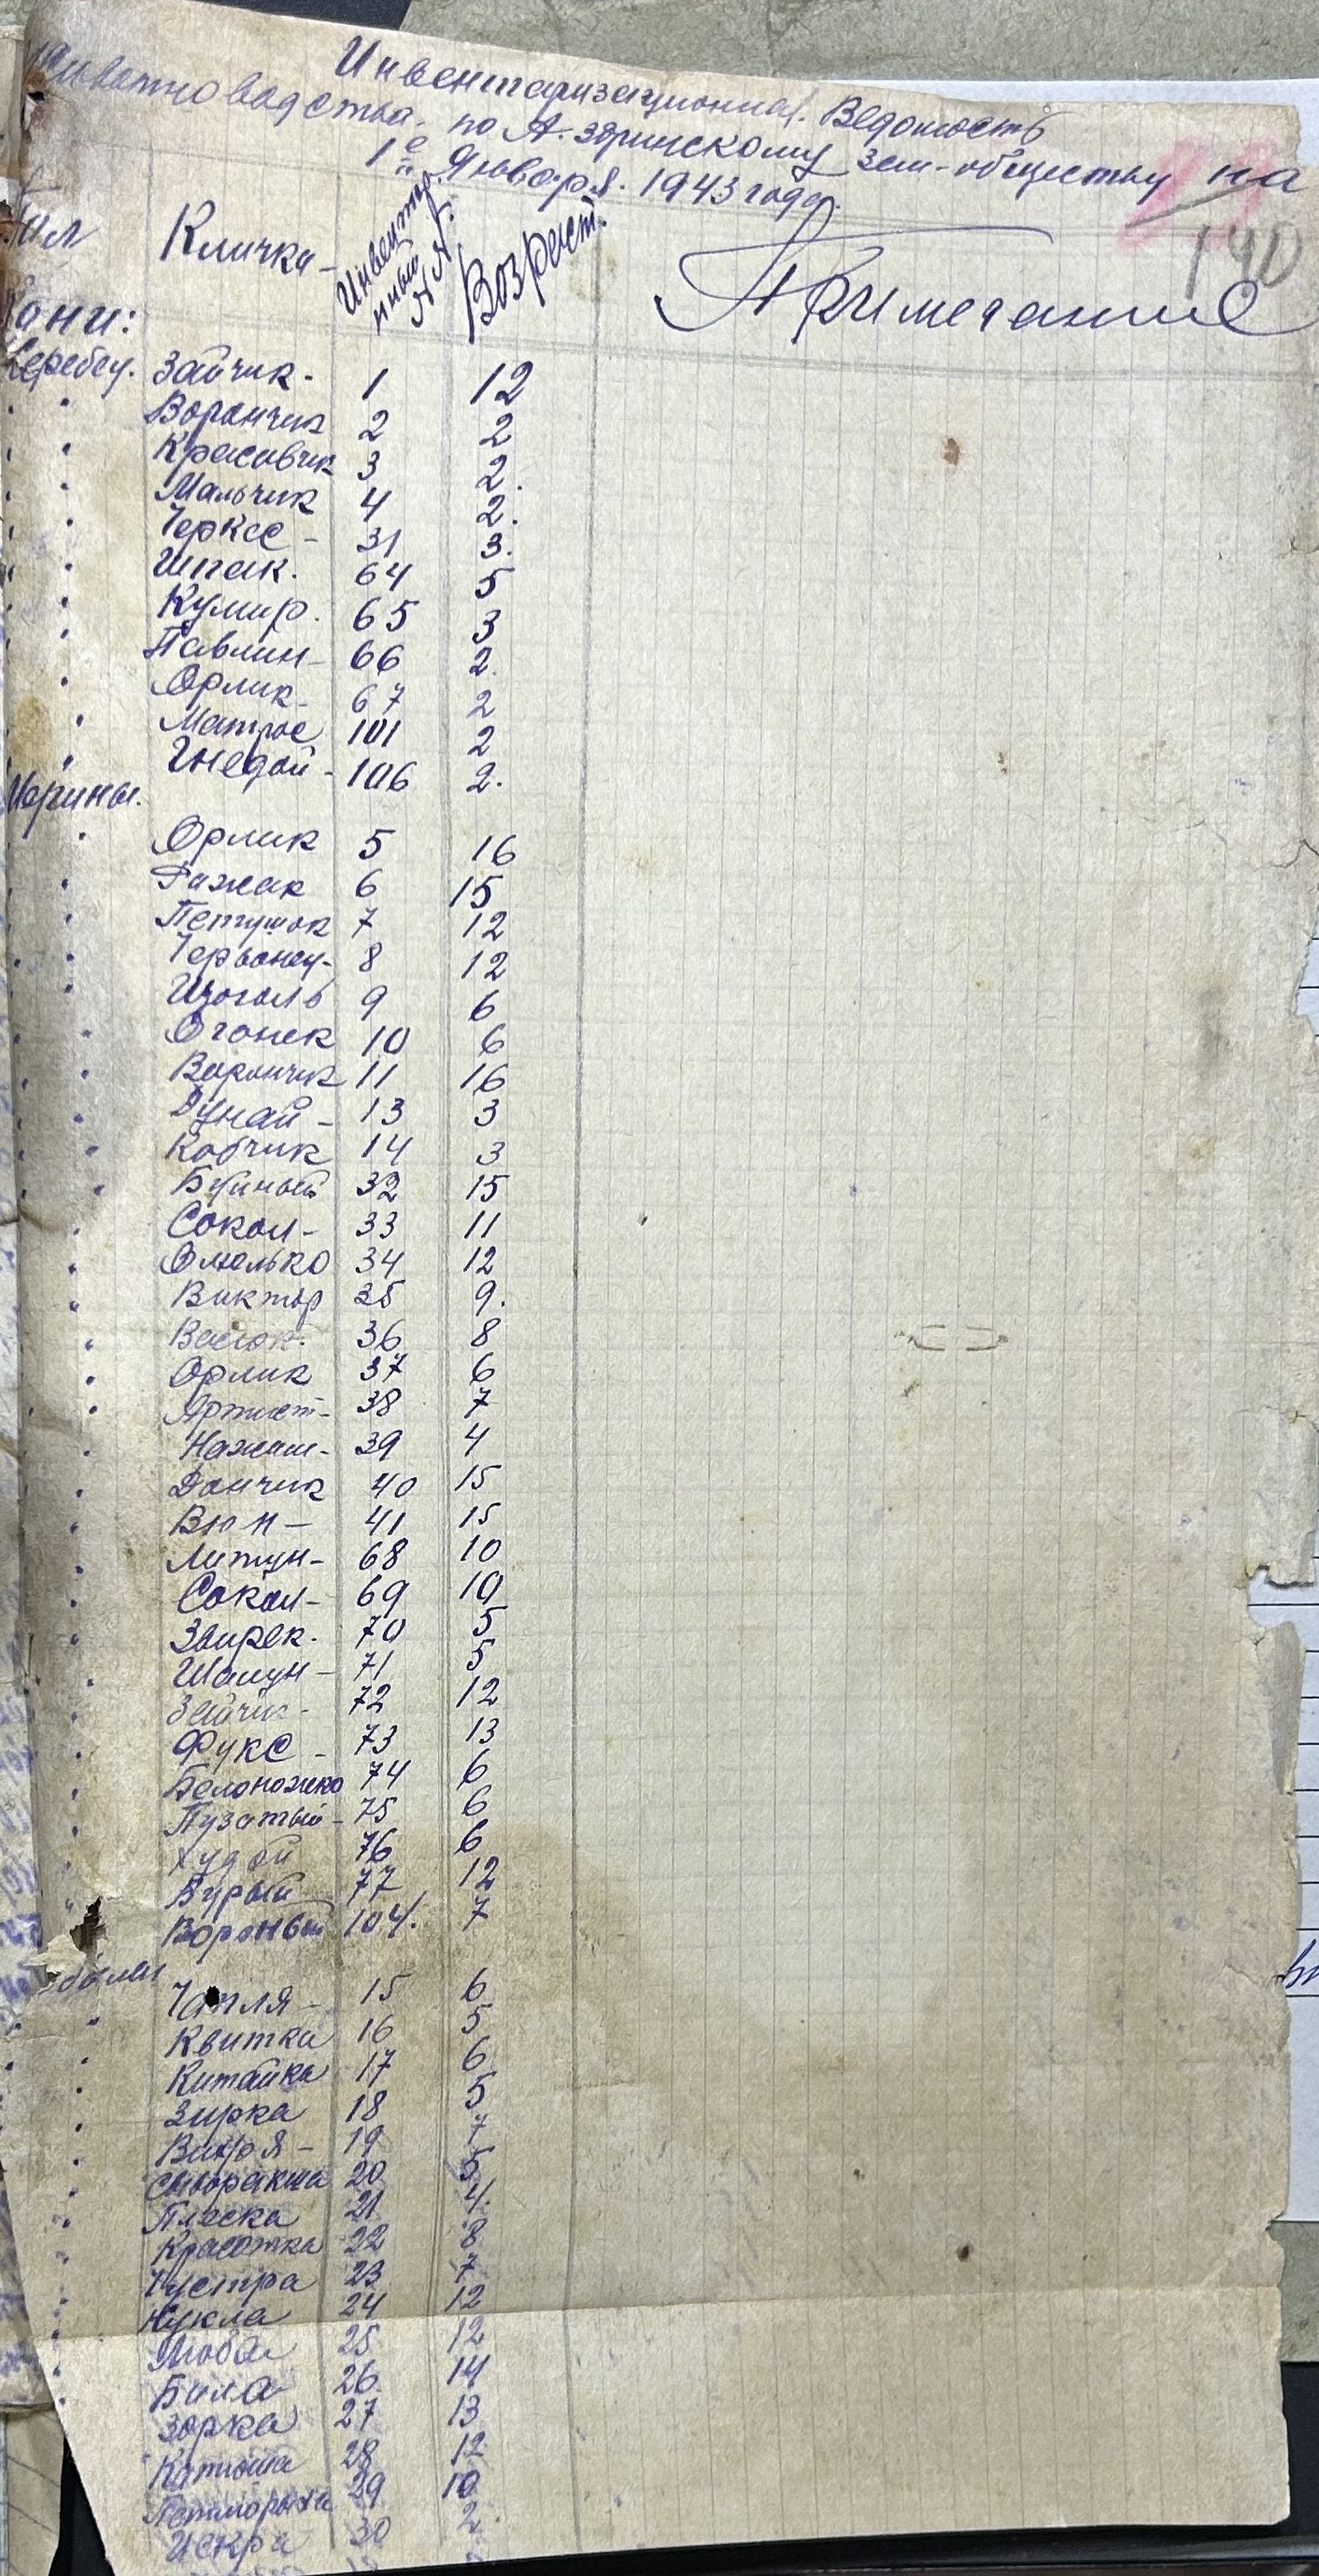 Инвентаризационная Ведомость
животноводства по А. здринскому зем-обществу на
1е Января. 1943 года.
140
Пол Кличка Инвентарный №№ Возраст. Примечание
Кони:
Жеребец. Зайчик. 1 12
" Ворончик 2 2
" Красавчик 3 2.
" Мальчик 4 2.
" Черкес 31 3.
" Шпак. 64 5
" Кумир. 65 3
" Павлин 66 2.
" Орлик 67 2
" Матрос 101 2
" Гнедой 106 2.
Мерины.
" Орлик 5 16
" Рижак 6 15
" Петушок 7 12
" Червонец 8 12
" 9 6
" Огонек 10 6
" Ворончик 11 16
" Дунай 13 3
" Кобчик 14 3
" Буйный 32 15
" Сокол 33 11
" 34 12
" Виктор 35 9.
" Васюк. 36 8
" Орлик 37 6
" Артист 38 7
" 39 4
" Дончик 40 15
" Вюн 41 15
" Литун 68 10
" Сокол 69 10
" Звирек. 70 5
" Шалун 71 5
" Зайчик 72 12
" Фукс 73 13
" Белоножко 74 6
" Пузатый 75 6
" Худой 76 6
" Бурый 77 12
" Вороной 104. 7
кобылы
" Чапля 15 6
" Квитка 16 5
" Китайка 17 6
" Зирка 18 5
" 19 7
" 20 5
" 21 4.
" Красотка 22 8
" Шустра 23 7
" Кукла 24 12
" Люба 25 12
" Била 26 14
" Зорка 27 13
" Катюша 28 12
" 29 10
Искра 30 2.